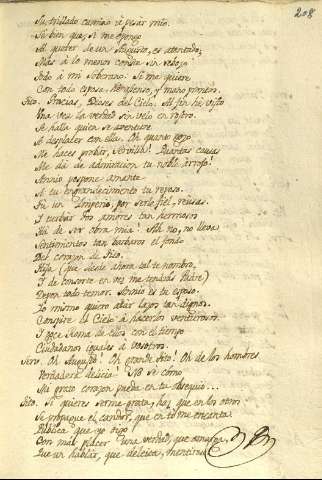 208
Su trillado camino à pisar
Sé bien que, si me opongo
Al querer de un Augusto, es atentado;
Mas à lo menos conste sin rebozo
Todo à mi Soberano. Si me quiere
Con todo esposa, y mano pronto.
Tito. Gracias, Dioses del Cielo. Al fin he visto
Una vez la verdad sin velo en rostro.
Se halla quien se aventure
A desplacer con ella. Oh quanto gozo
Me haces probar, Servilia! Quantas causas
Me dà de admiracion tu noble arrojo!
Annio pospone amante
A tu engrandecimiento tu reposo.
Tù un Imperio, por serle fiel, reusas.
Y turbar dos amores tan hermosos
Ha de ser obra mia! Ah no, no lleva
Sentimientos tan barbaros el fondo
Del corazon de Tito.
Hija (que desde ahora tal te nombro,
Y de consorte en vez me tendrás Padre)
Depon todo temor. Annio es tu esposo.
Yo mismo quiero atar lazos tan dignos.
Conspire el Cielo à hacerlos venturosos.
Y goce Roma de ellos con el tiempo
Ciudadanos iguales à vosotros.
Serv. Oh Augusto! Oh grande Tito! Oh de los hombres
Verdadera delicia! No sé como
Mi grato corazon pueda en tu obsequio...
Tito. Si quieres serme grata, haz que en los otros
Se el candor, que en ti me encanta
Publica que yo digo
Con más placer una verdad, que amarga,
Que un hablar, que deleita, mentiroso.